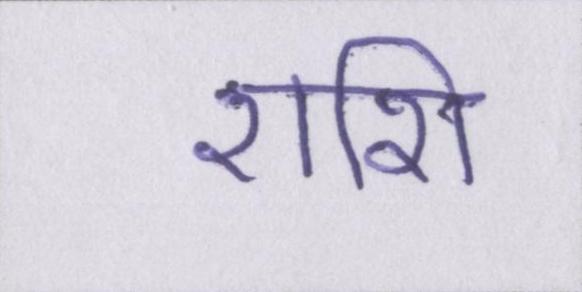 राशि